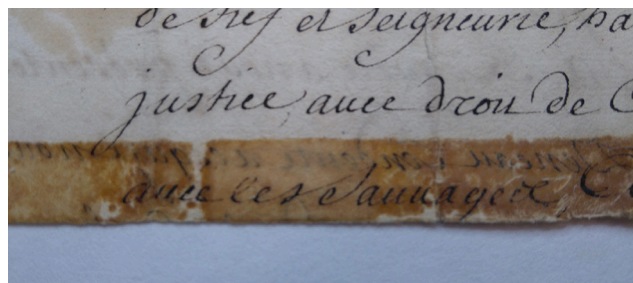 de fief et Seigneurie, ha
justice, avec droit de C
avec les Sauvages,